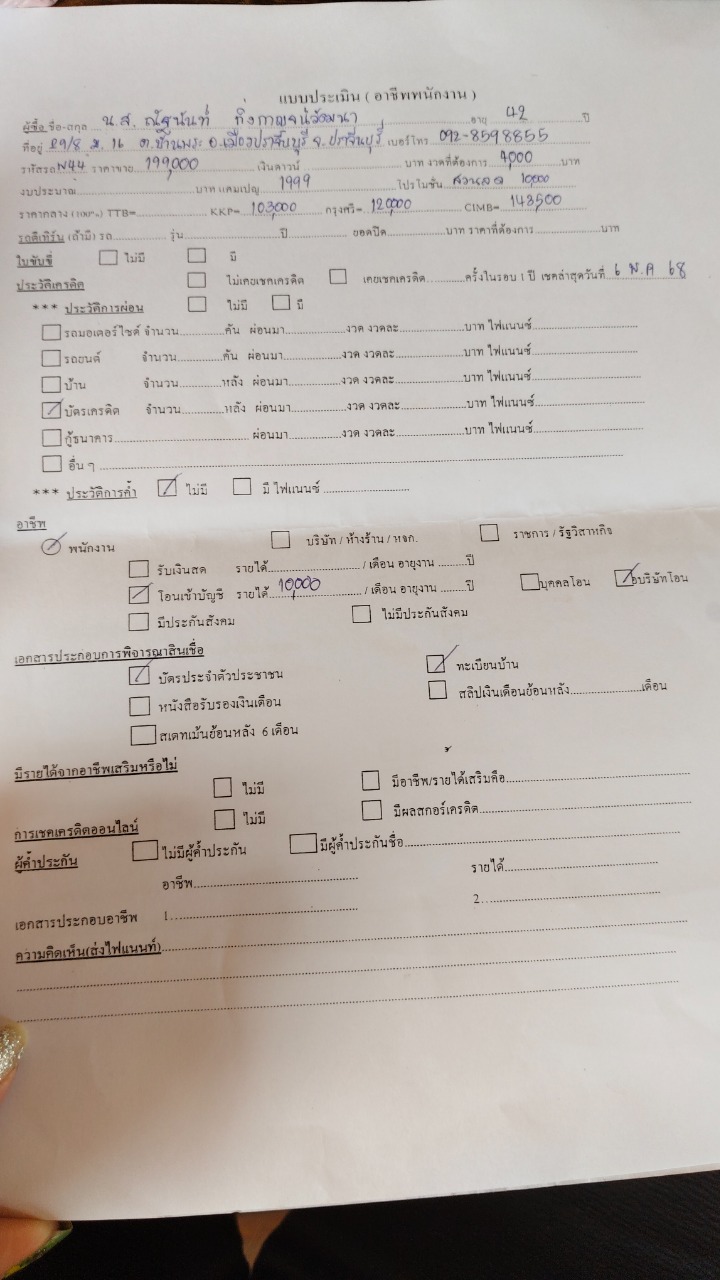 แบบประเมิน ( อาชีพพนักงาน )
ผู้ซื้อ ชื่อ-สกุล ... น.ส. ณัฐนันท์ ... อายุ 42 ปี
ที่อยู่ 29/8 ม. 16 ต.บ้านพระ อ.เมืองปราจีนบุรี จ.ปราจีนบุรี เบอร์โทร 092-8598855
รหัสรถ N44 ราคาขาย 199,000 เงินดาวน์ บาท งวดที่ต้องการ 4,000 บาท
งบประมาณ บาท แคมเปญ 1999 โปรโมชั่น ส่วนลด 10,000
ราคากลาง (100%) TTB= KKP= 103,000 กรุงศรี= 120,000 CIMB= 143,500
รถตีเทิร์น (ถ้ามี) รถ รุ่น ปี ยอดปิด บาท ราคาที่ต้องการ บาท
ใบขับขี่ ไม่มี มี
ประวัติเครดิต ไม่เคยเชคเครดิต เคยเชคเครดิต ครั้งในรอบ 1 ปี เชคล่าสุดวันที่ 6 พ.ค 68
*** ประวัติการผ่อน ไม่มี มี
รถมอเตอร์ไซด์ จำนวน คัน ผ่อนมา งวด งวดละ บาท ไฟแนนซ์
รถยนต์ จำนวน คัน ผ่อนมา งวด งวดละ บาท ไฟแนนซ์
บ้าน จำนวน หลัง ผ่อนมา งวด งวดละ บาท ไฟแนนซ์
บัตรเครดิต จำนวน หลัง ผ่อนมา งวด งวดละ บาท ไฟแนนซ์
กู้ธนาคาร ผ่อนมา งวด งวดละ บาท ไฟแนนซ์
อื่น ๆ
*** ประวัติการค้ำ ไม่มี มี ไฟแนนซ์
อาชีพ
พนักงาน บริษัท / ห้างร้าน / หจก. ราชการ / รัฐวิสาหกิจ
รับเงินสด รายได้ / เดือน อายุงาน ปี
โอนเข้าบัญชี รายได้ 10,000 / เดือน อายุงาน ปี บุคคลโอน บริษัทโอน
มีประกันสังคม ไม่มีประกันสังคม
เอกสารประกอบการพิจารณาสินเชื่อ
บัตรประจำตัวประชาชน ทะเบียนบ้าน
หนังสือรับรองเงินเดือน สลิปเงินเดือนย้อนหลัง เดือน
สเตทเม้นย้อนหลัง 6 เดือน
มีรายได้จากอาชีพเสริมหรือไม่
ไม่มี มีอาชีพ/รายได้เสริมคือ
การเชคเครดิตออนไลน์ ไม่มี มีผลสกอร์เครดิต
ผู้ค้ำประกัน ไม่มีผู้ค้ำประกัน มีผู้ค้ำประกันชื่อ
อาชีพ รายได้
เอกสารประกอบอาชีพ 1 2
ความคิดเห็น(ส่งไฟแนนท์)